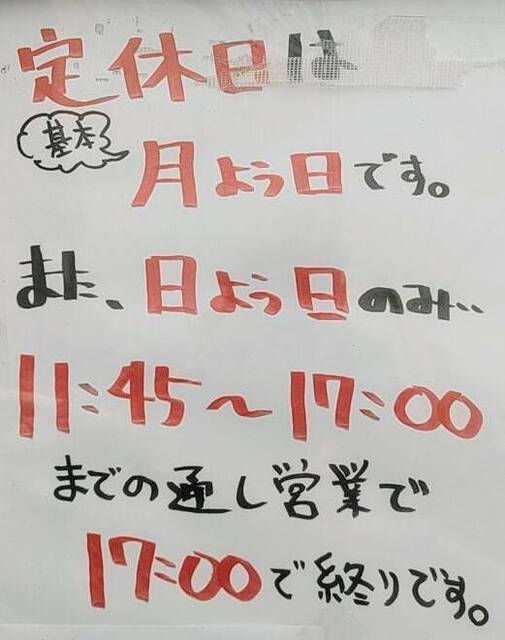 定休日は
基本
月よう日です。
また、日よう日のみ‥
11:45〜17:00
までの通し営業で
17:00で終りです。